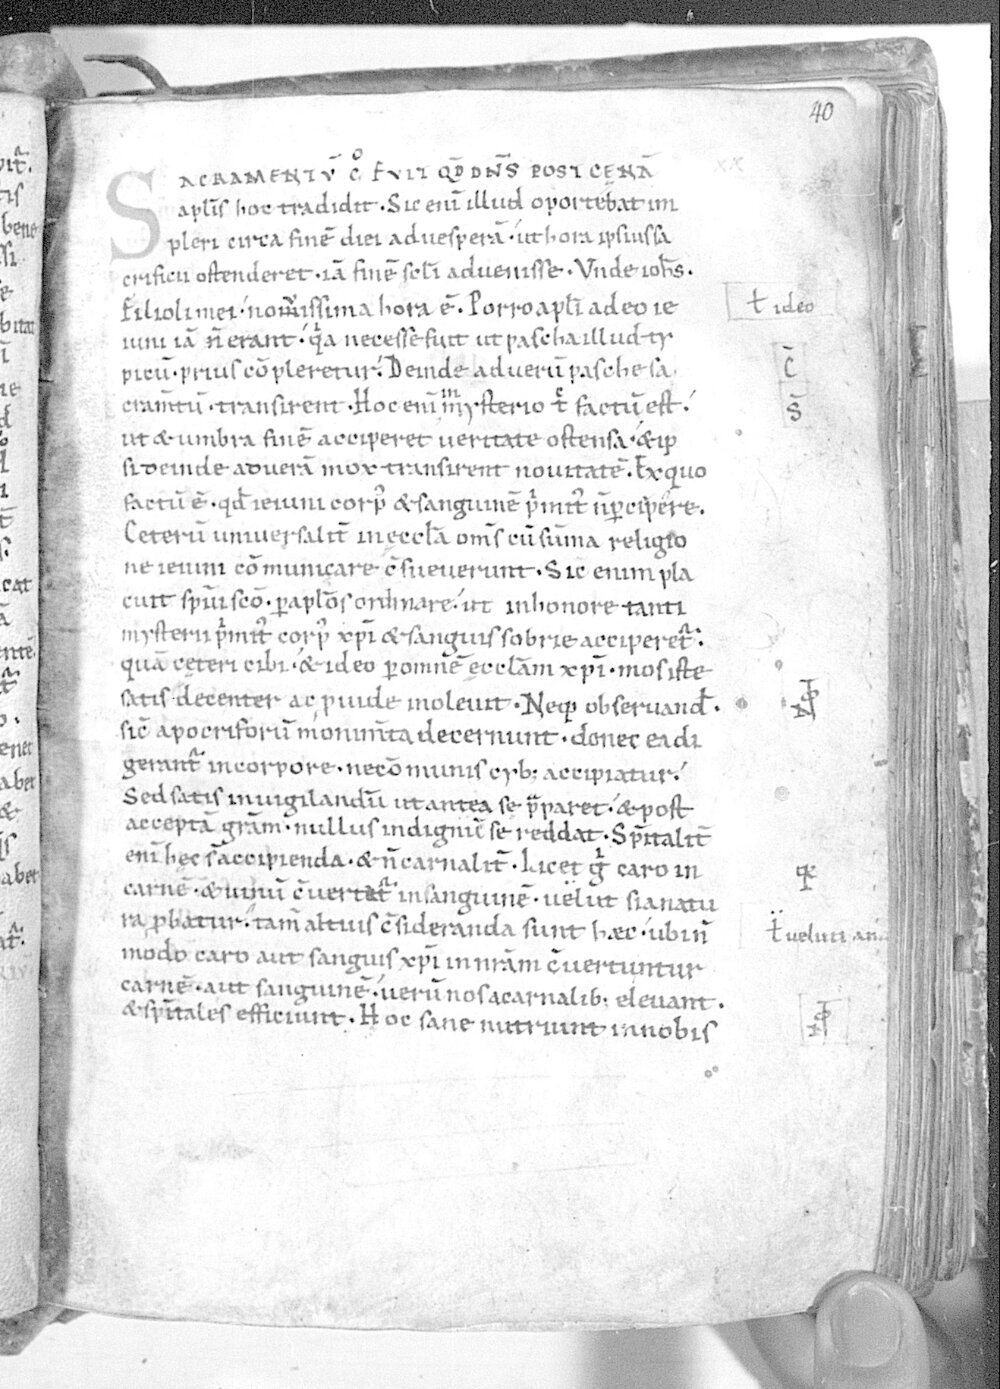 40
SACRAMENTŪ C̊ FUIT QD̄ DN̄S POST CENĀ
apl̄is hoc tradidit · Sic eni̅ illud oportebat im
pleri circa finē diei ad uesperā · ut hora ipsius sa
crificii ostenderet · iā finē sc̄li aduenisse · Vnde ioh̄s ·
filioli mei · nouissima hora ē · Porro apl̄i adeo ie
iuni iā n̄ erant · qͣ necesse fuit ut pascha illud ty
picū · prius cōpleretur · Deinde ad uerū pasche sa
cram̄tū · transirent · Hoc eni̅ mysterio t̄c factū est ·
ut & umbra finē acciperet ueritate ostensa · & ip
si deinde ad uerā mox transirent nouitatē · Ex quo
factū ē · qd̄ ieiuni corpꝰ & sanguinē p̄mit̄t n̄ ꝑcipere ·
Ceterū uniuersalit̄ in eccl̄a om̄s cū sūma religio
ne ieiuni cōmunicare c̄sueuerunt · Sic enim pla
cuit spūi sc̄o · ꝑ apl̄os ordinare · ut in honore tanti
mysterii p̄mit̄t corpꝰ xp̄i & sanguis sobrie acciperet̄ ·
quā cęteri cibi · & ideo ꝑ omnē ecclām xp̄i · mos iste
satis decenter ac ꝓuide inoleuit · Neq; obseruand̄ ·
sic̄ apocriforū monim̄ta decernunt · donec ea di
gerant̄ in corpore · ne cōmunis cyb; accipiatur ·
Sed satis inuigilandū ut antea se p̄paret · & post
acceptā grām · nullus indignū se reddat · Sp̄italit̄
eni̅ hęc s̄ accipienda · & n̄ carnalit̄ · Licet g̊ caro in
carnē · & uinū c̄uertat̄ in sanguinē · uelut si a natu
ra ꝓbatur · tam̄ altius c̄sideranda sunt hæc · ubi n̄
modo caro aut sanguis xp̄i in nr̄am c̄uertuntur
carnē · aut sanguinē · uerū nos a carnalib; eleuant ·
& sp̄itales efficiunt · Hoc sane nutriunt in nobis
ł ideo
C̄
S̄
ł ueluti an